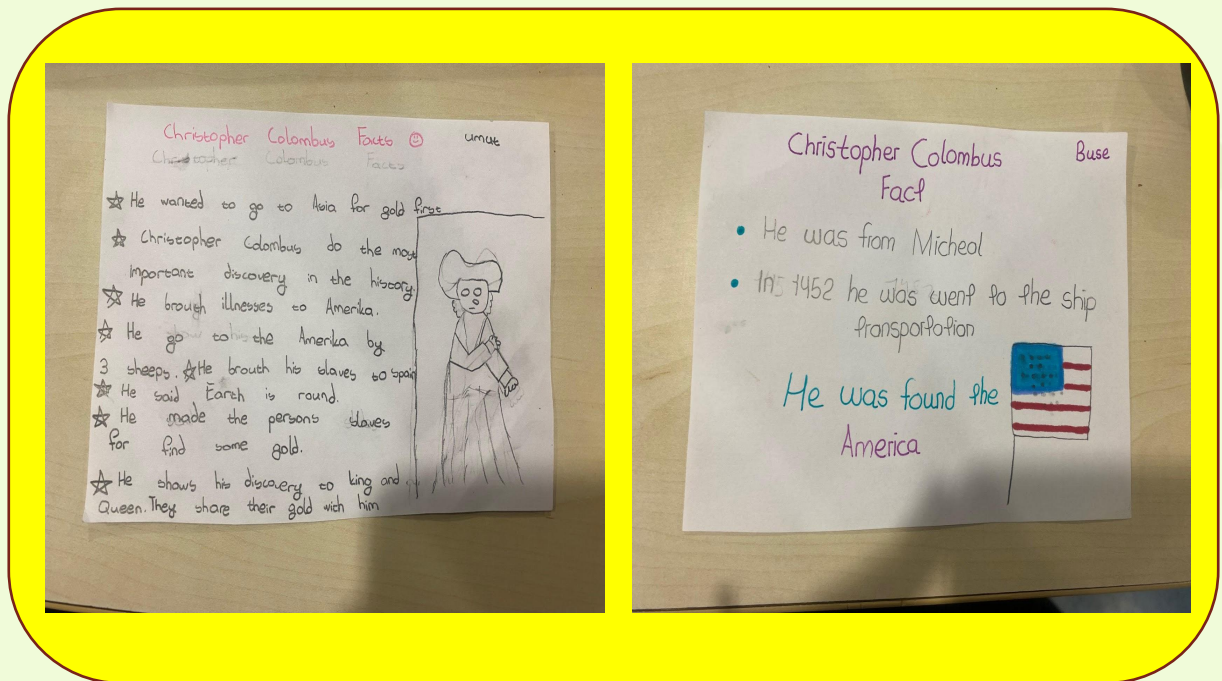 Christopher Colombus Facts umut
Christopher Colombus Facts
He wanted to go to Asia for gold first
Christopher Colombus do the most
important discovery in the history.
He brough illnesses to Amerika.
He go to the Amerika by
3 sheeps. He brouth his slaves to spain
He said Earth is round.
He made the persons slaves
for find some gold.
He shows his discovery to king and
Queen. They share their gold with him
Christopher Colombus Buse
Fact
He was from Micheal
In 1452 he was went to the ship
transportation
He was found the
America